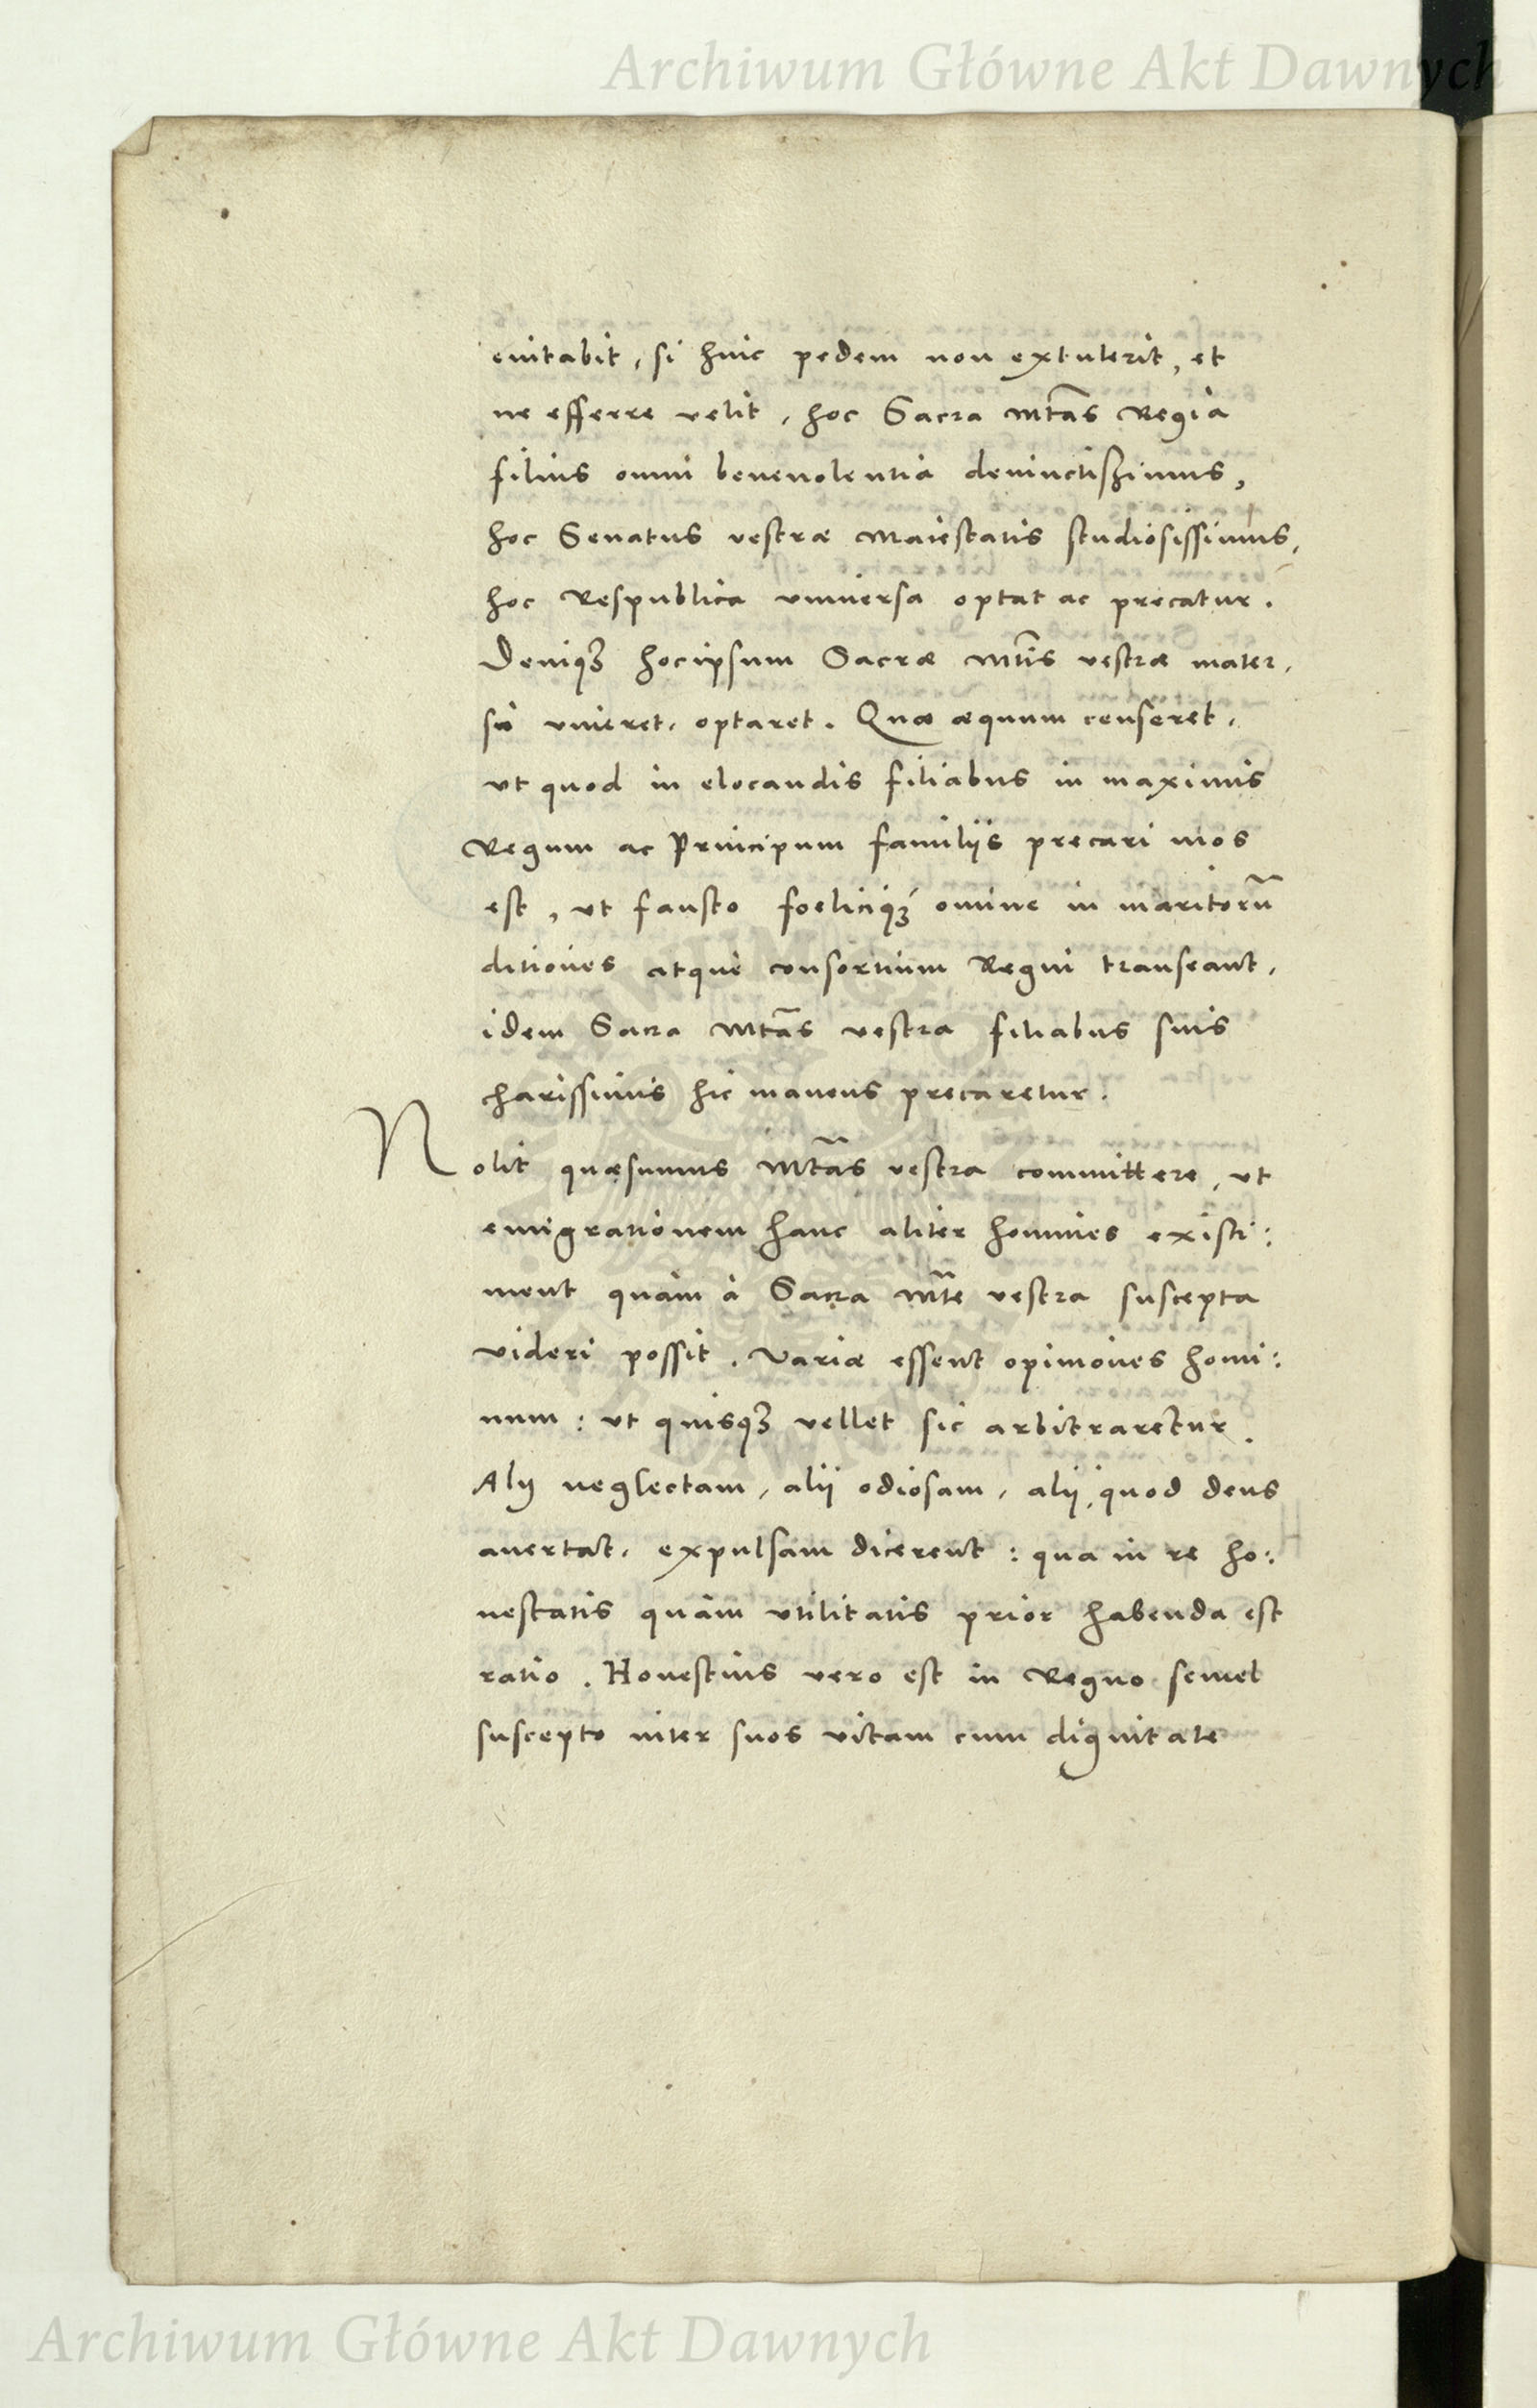 Archiwum Główne Akt Dawnych
euitabit, si hinc pedem non extulerit, et
ne efferre velit, hoc Sacra Mtas Regia
filius omni beneuolentia deuinctißimus,
hoc Senatus vestræ Maiestatis studiosissimus,
hoc Respublica vniuersa optat ac precatur.
Deniqꝫ hocipsum Sacræ Mtis vestræ mater,
si viueret, optaret. Quæ æquum censeret,
vt quod in elocandis filiabus in maximis
Regum ac Principum familijs precari mos
est, vt fausto foeliciqꝫ omine in maritorū
ditiones atque consortium Regni transeant,
idem Sacra Mtas vestra filiabus suis
charissimis hic manens precaretur.
Nolit quæsumus Mtas vestra committere, vt
emigrationem hanc aliter homines existi:
ment quàm à Sacra Mte vestra suscepta
videri possit. Variæ essent opiniones homi:
num: vt quisqꝫ vellet sic arbitraretur.
Alij neglectam, alij odiosam, alij, quod deus
auertat, expulsam dicerent: qua in re ho:
nestatis quàm vtilitatis prior habenda est
ratio. Honestius vero est in Regno semel
suscepto inter suos vitam cum dignitate
Archiwum Główne Akt Dawnych